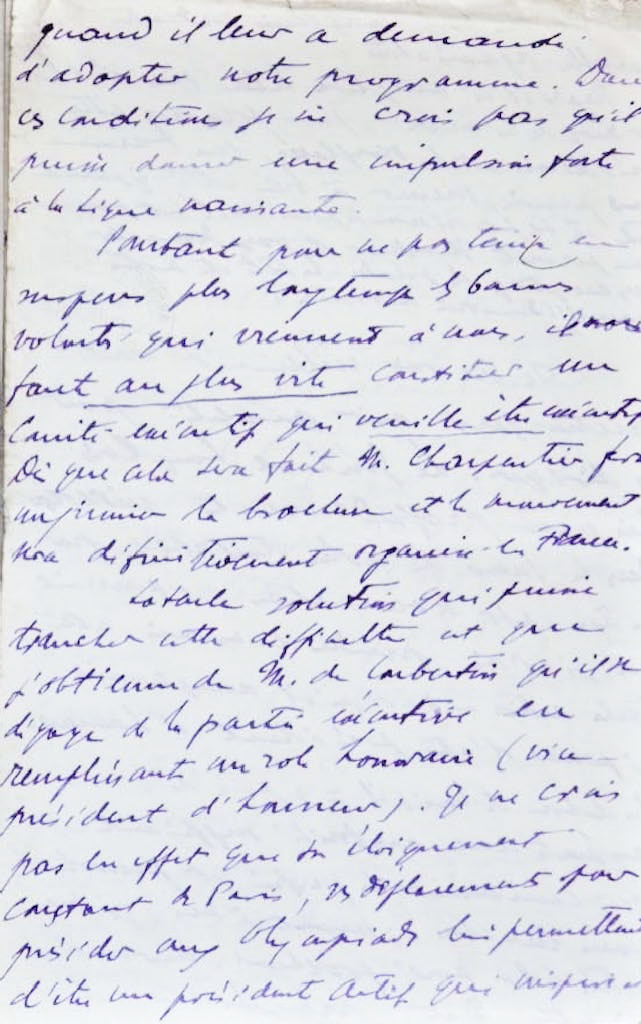 quand il leur a demandé
d'adopter notre programme. Dans
ces conditions je ne crois pas qu'il
puisse donner une impulsion forte
à la Ligue naissante.
Pourtant pour ne pas tenir en
suspens plus longtemps les bonnes
volontés qui viennent à nous, il nous
faut au plus vite constituer un
Comité exécutif qui veuille être exécutif
Dès que cela sera fait M. Charpentier fera
imprimer la brochure et le mouvement
sera définitivement organisé en France.
La seule solution qui puisse
trancher cette difficulté est que
j'obtienne de M. de Coubertin qu'il se
dégage de la partie exécutive en
remplissant un rôle honoraire (vice-
président d'honneur). Je ne crois
pas en effet que son éloignement
constant de Paris, ses déplacements pour
présider aux Olympiades lui permettent
d'être un président actif qui